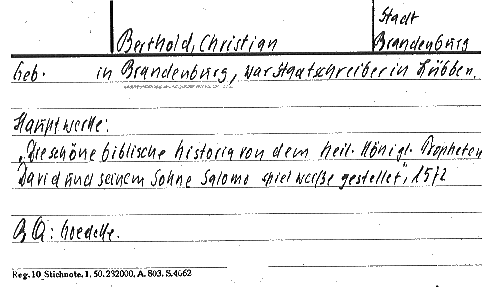 Stadt
Berthold, Christian
Brandenburg
Geb. in Brandenburg, war Stattschreiber in Lübben.
Hauptwerke:
„Die schöne biblische historia von dem heil. Königl. Propheten
David und seinem Sohne Salomo spiel weiße gestellet", 1572
B Q: Goedeke.
Reg. 10_Stichnote. 1. 50. 232000, A. 803. S. 4662